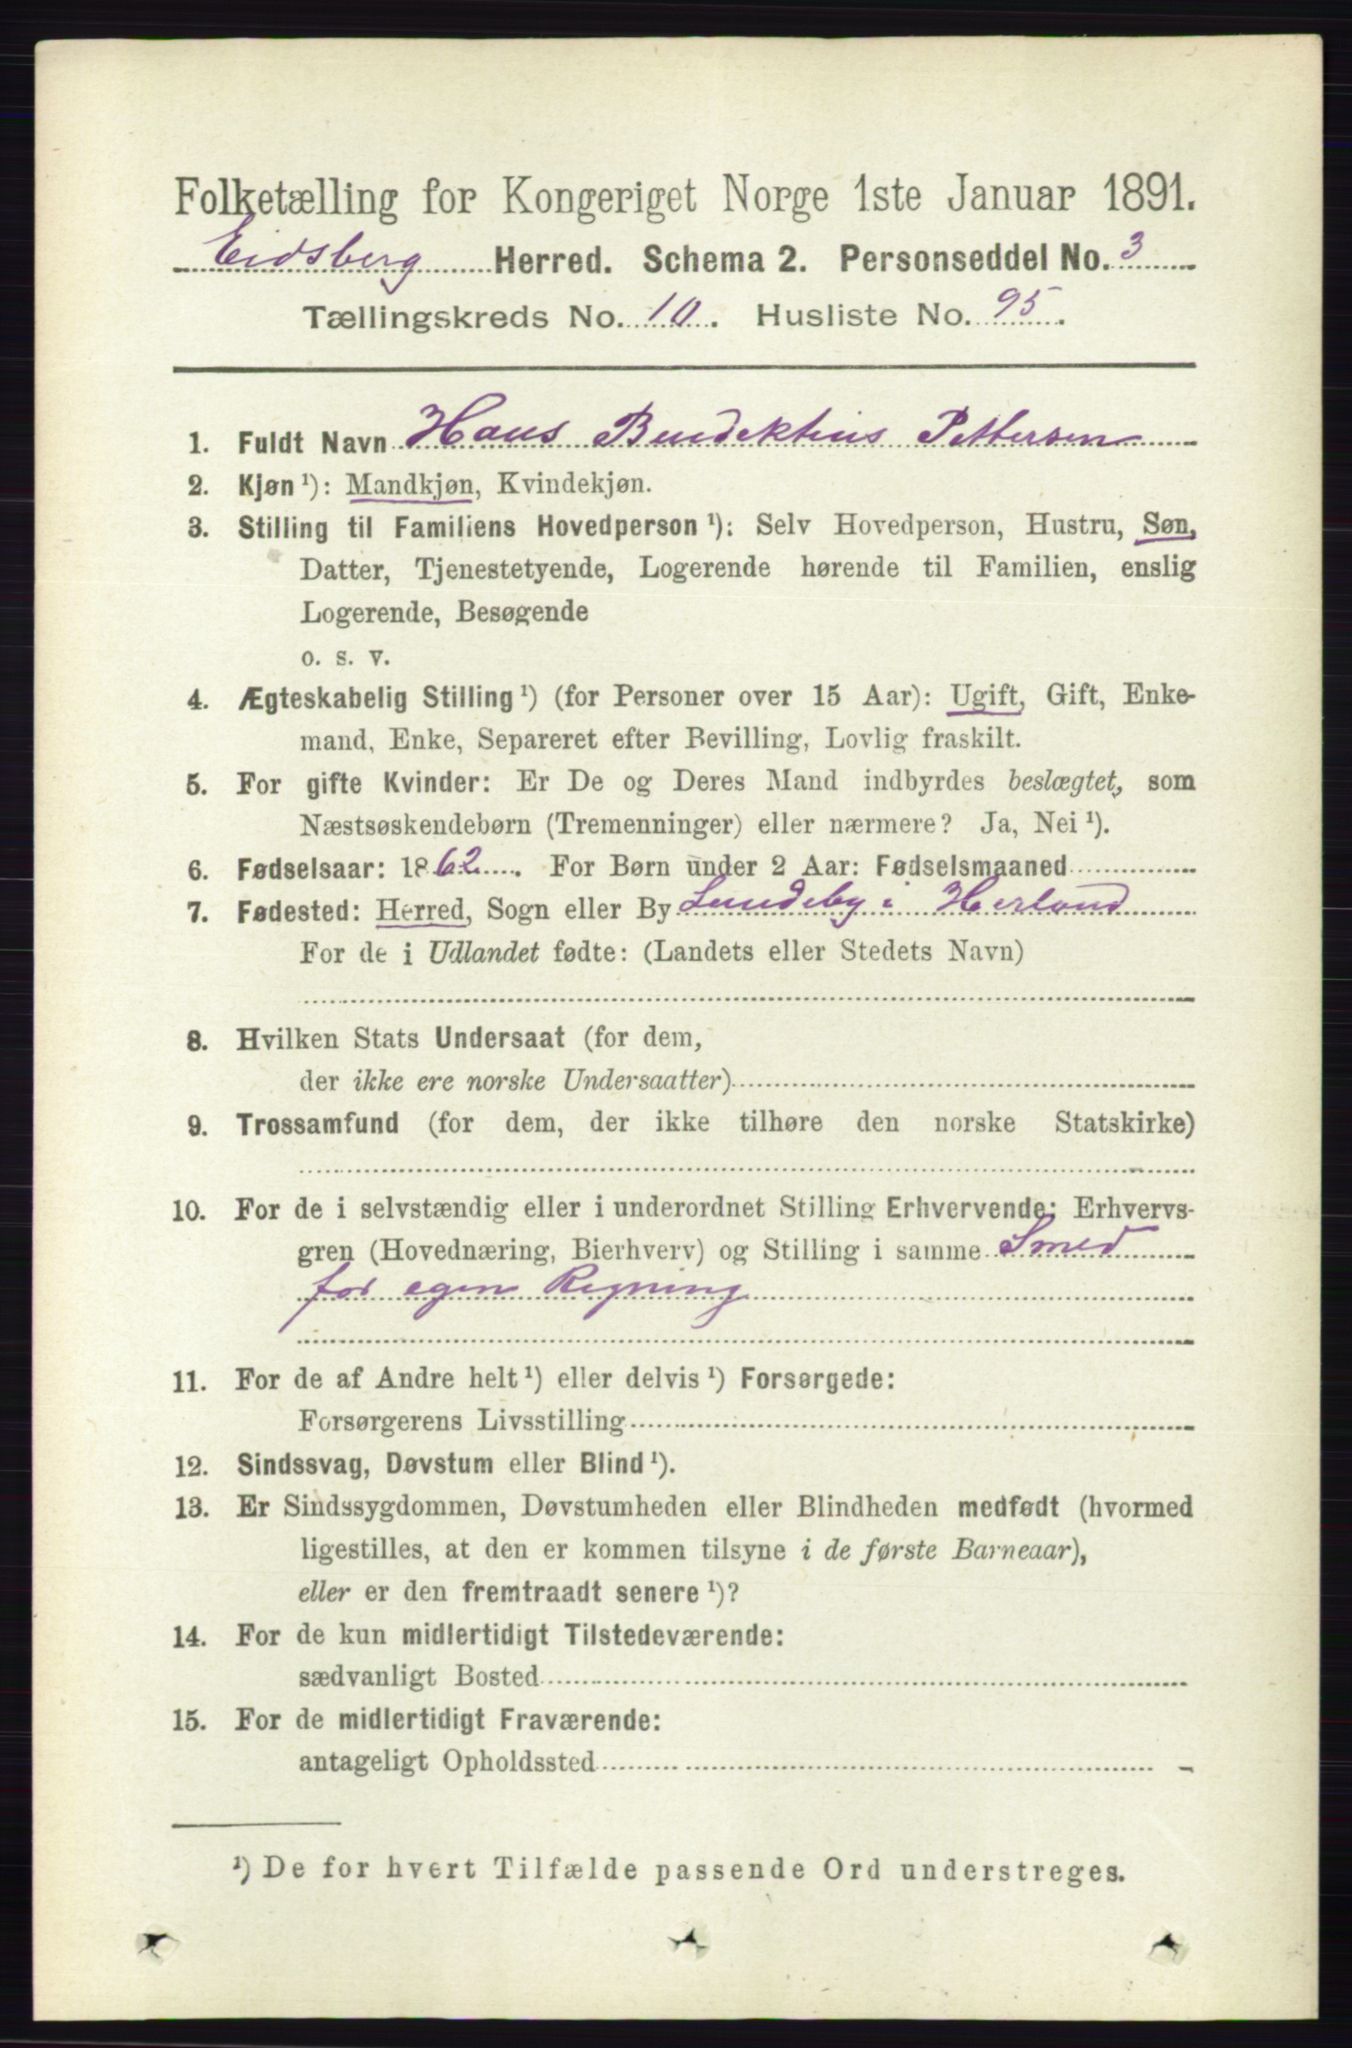 Folketælling for Kongeriget Norge 1ste Januar 1891.
Eidsberg Herred. Schema 2. Personseddel No. 3
Tællingskreds No. 10. Husliste No. 95.
1. Fuldt Navn Hans Bendekthus Pettersen
2. Kjøn ¹): Mandkjøn, Kvindekjøn.
3. Stilling til Familiens Hovedperson ¹): Selv Hovedperson, Hustru, Søn,
Datter, Tjenestetyende, Logerende hørende til Familien, enslig
Logerende, Besøgende
o. s. v.
4. Ægteskabelig Stilling ¹) (for Personer over 15 Aar): Ugift, Gift, Enke-
mand, Enke, Separeret efter Bevilling, Lovlig fraskilt.
5. For gifte Kvinder: Er De og Deres Mand indbyrdes beslægtet, som
Næstsøskendebørn (Tremenninger) eller nærmere? Ja, Nei ¹).
6. Fødselsaar: 1862. For Børn under 2 Aar: Fødselsmaaned
7. Fødested: Herred, Sogn eller By Lundeby i Herland
For de i Udlandet fødte: (Landets eller Stedets Navn)
8. Hvilken Stats Undersaat (for dem,
der ikke ere norske Undersaatter)
9. Trossamfund (for dem, der ikke tilhøre den norske Statskirke)
10. For de i selvstændig eller i underordnet Stilling Erhvervende: Erhvervs-
gren (Hovednæring, Bierhverv) og Stilling i samme Smed
for egen Regning
11. For de af Andre helt ¹) eller delvis ¹) Forsørgede:
Forsørgerens Livsstilling
12. Sindssvag, Døvstum eller Blind ¹).
13. Er Sindssygdommen, Døvstumheden eller Blindheden medfødt (hvormed
ligestilles, at den er kommen tilsyne i de første Barneaar),
eller er den fremtraadt senere ¹)?
14. For de kun midlertidigt Tilstedeværende:
sædvanligt Bosted
15. For de midlertidigt Fraværende:
antageligt Opholdssted
¹) De for hvert Tilfælde passende Ord understreges.